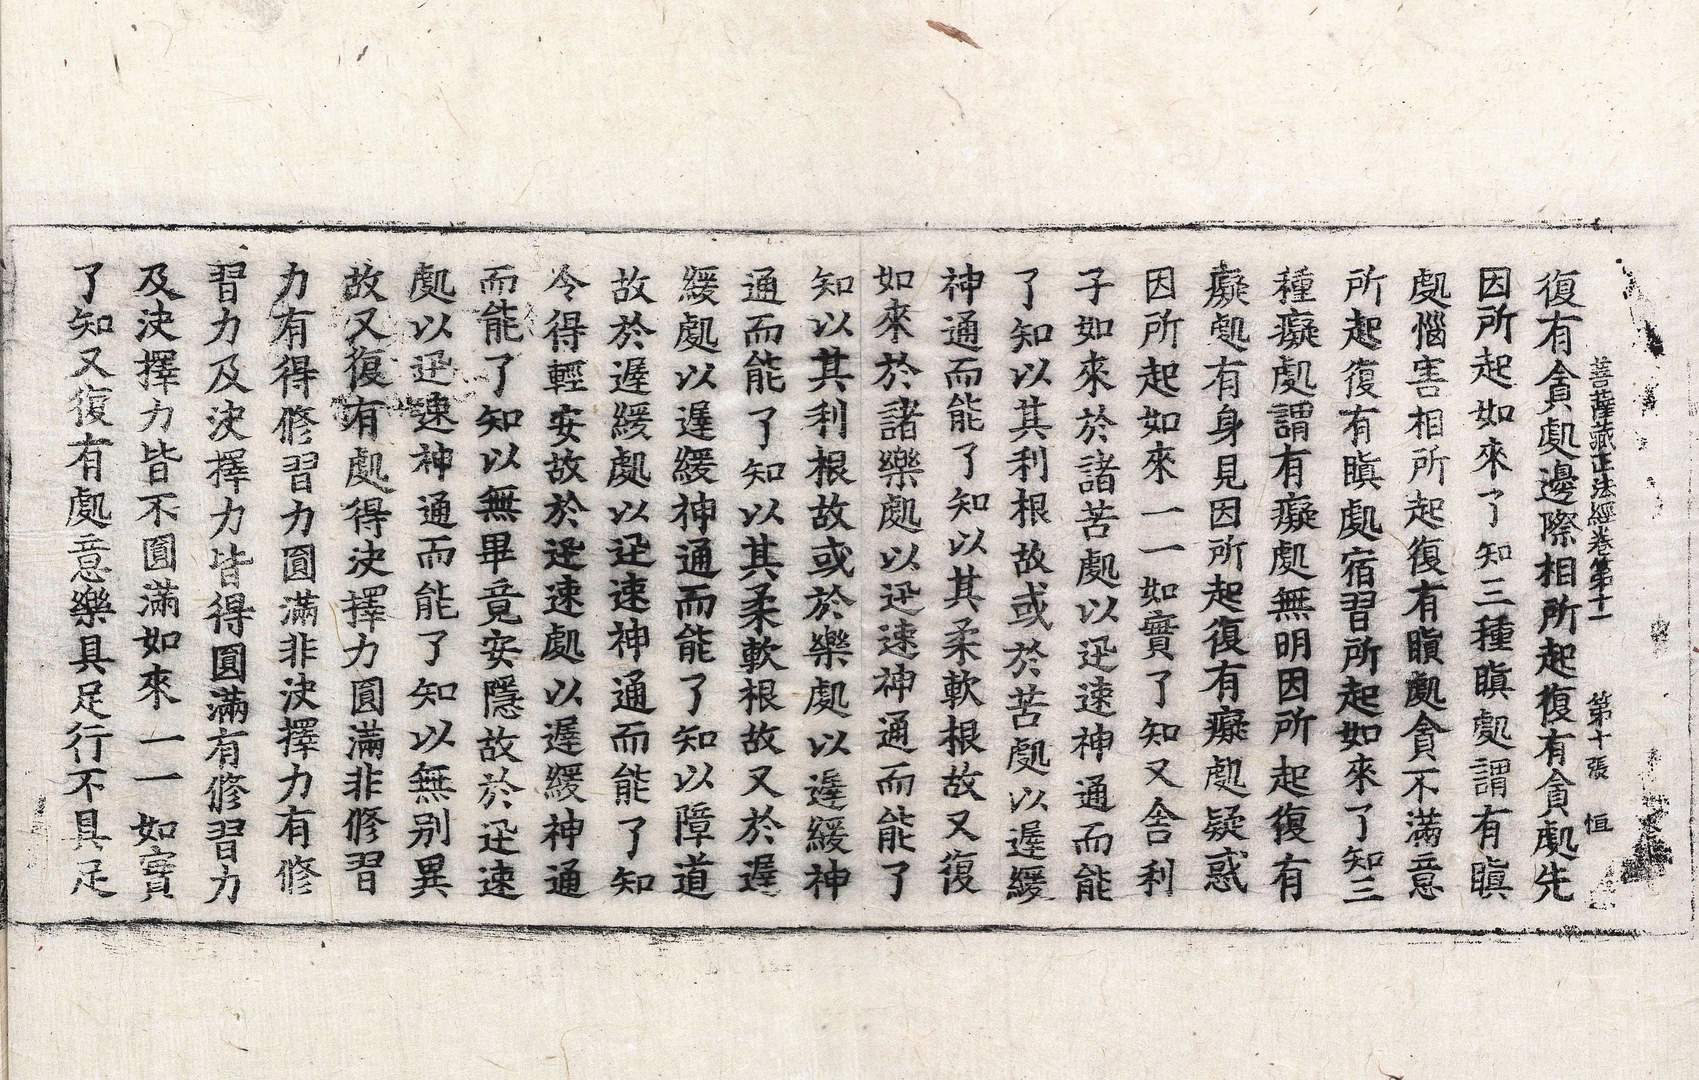 菩薩藏正法經卷第十一 第十張 恒
復有貪處邊際相所起復有貪處先
因所起如來了知三種瞋處謂有瞋
處惱害相所起復有瞋處貪不滿意
所起復有瞋處宿習所起如來了知三
種癡處謂有癡處無明因所起復有
癡處有身見因所起復有癡處疑惑
因所起如來一一如實了知又舍利
子如來於諸苦處以迅速神通而能
了知以其利根故或於苦處以遲緩
神通而能了知以其柔軟根故又復
如來於諸樂處以迅速神通而能了
知以其利根故或於樂處以遲緩神
通而能了知以其柔軟根故又於遲
緩處以遲緩神通而能了知以障道
故於遲緩處以迅速神通而能了知
令得輕安故於迅速處以遲緩神通
而能了知以無畢竟安隱故於迅速
處以迅速神通而能了知以無別異
故又復有處得決擇力圓滿非修習
力有得修習力圓滿非決擇力有修
習力及決擇力皆得圓滿有修習力
及決擇力皆不圓滿如來一一如實
了知又復有處意樂具足行不具足